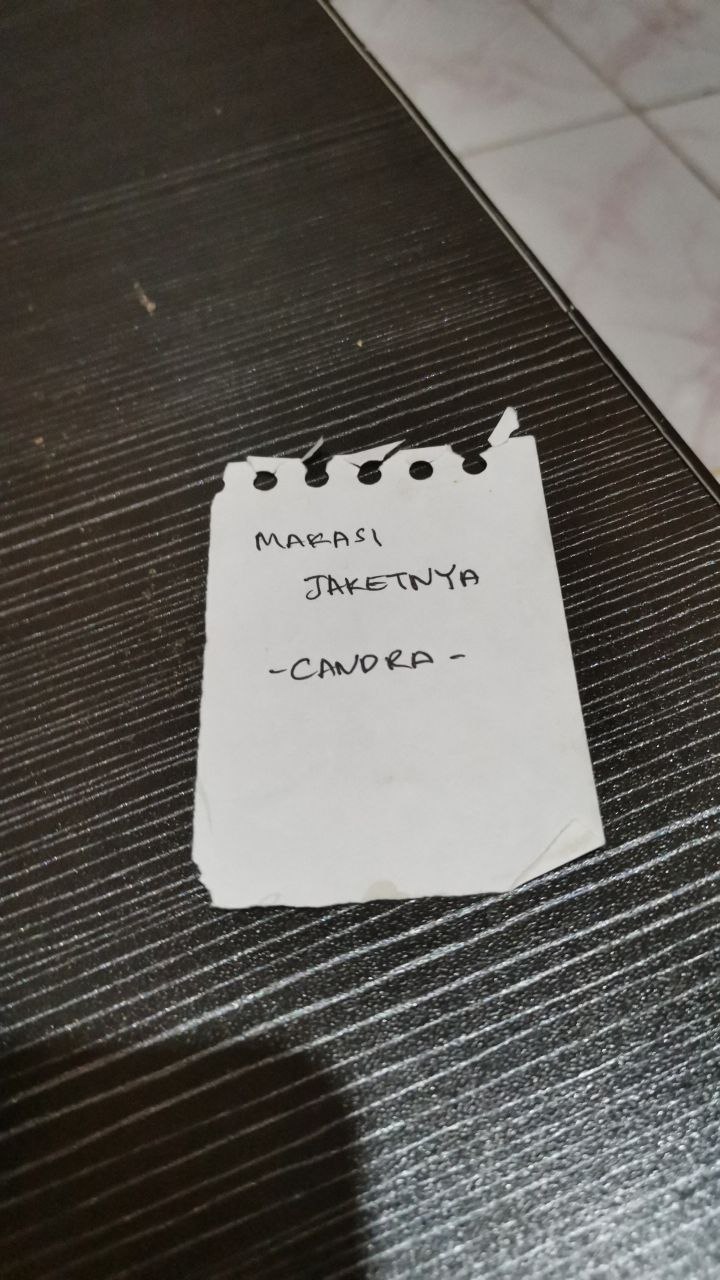 MAKASI
JAKETNYA
-CANDRA-